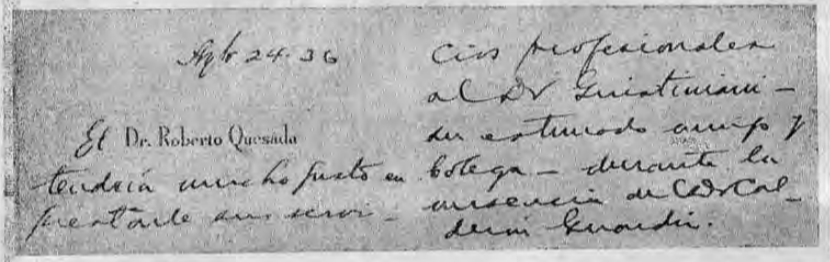 24-36
El Dr. Roberto Quesada
tendría mucho gusto en
prestarle sus servi-
cios profesionales
al Dr
su estimado amigo y
colega - durante la
ausencia del Dr Cal-
derón Guardia.